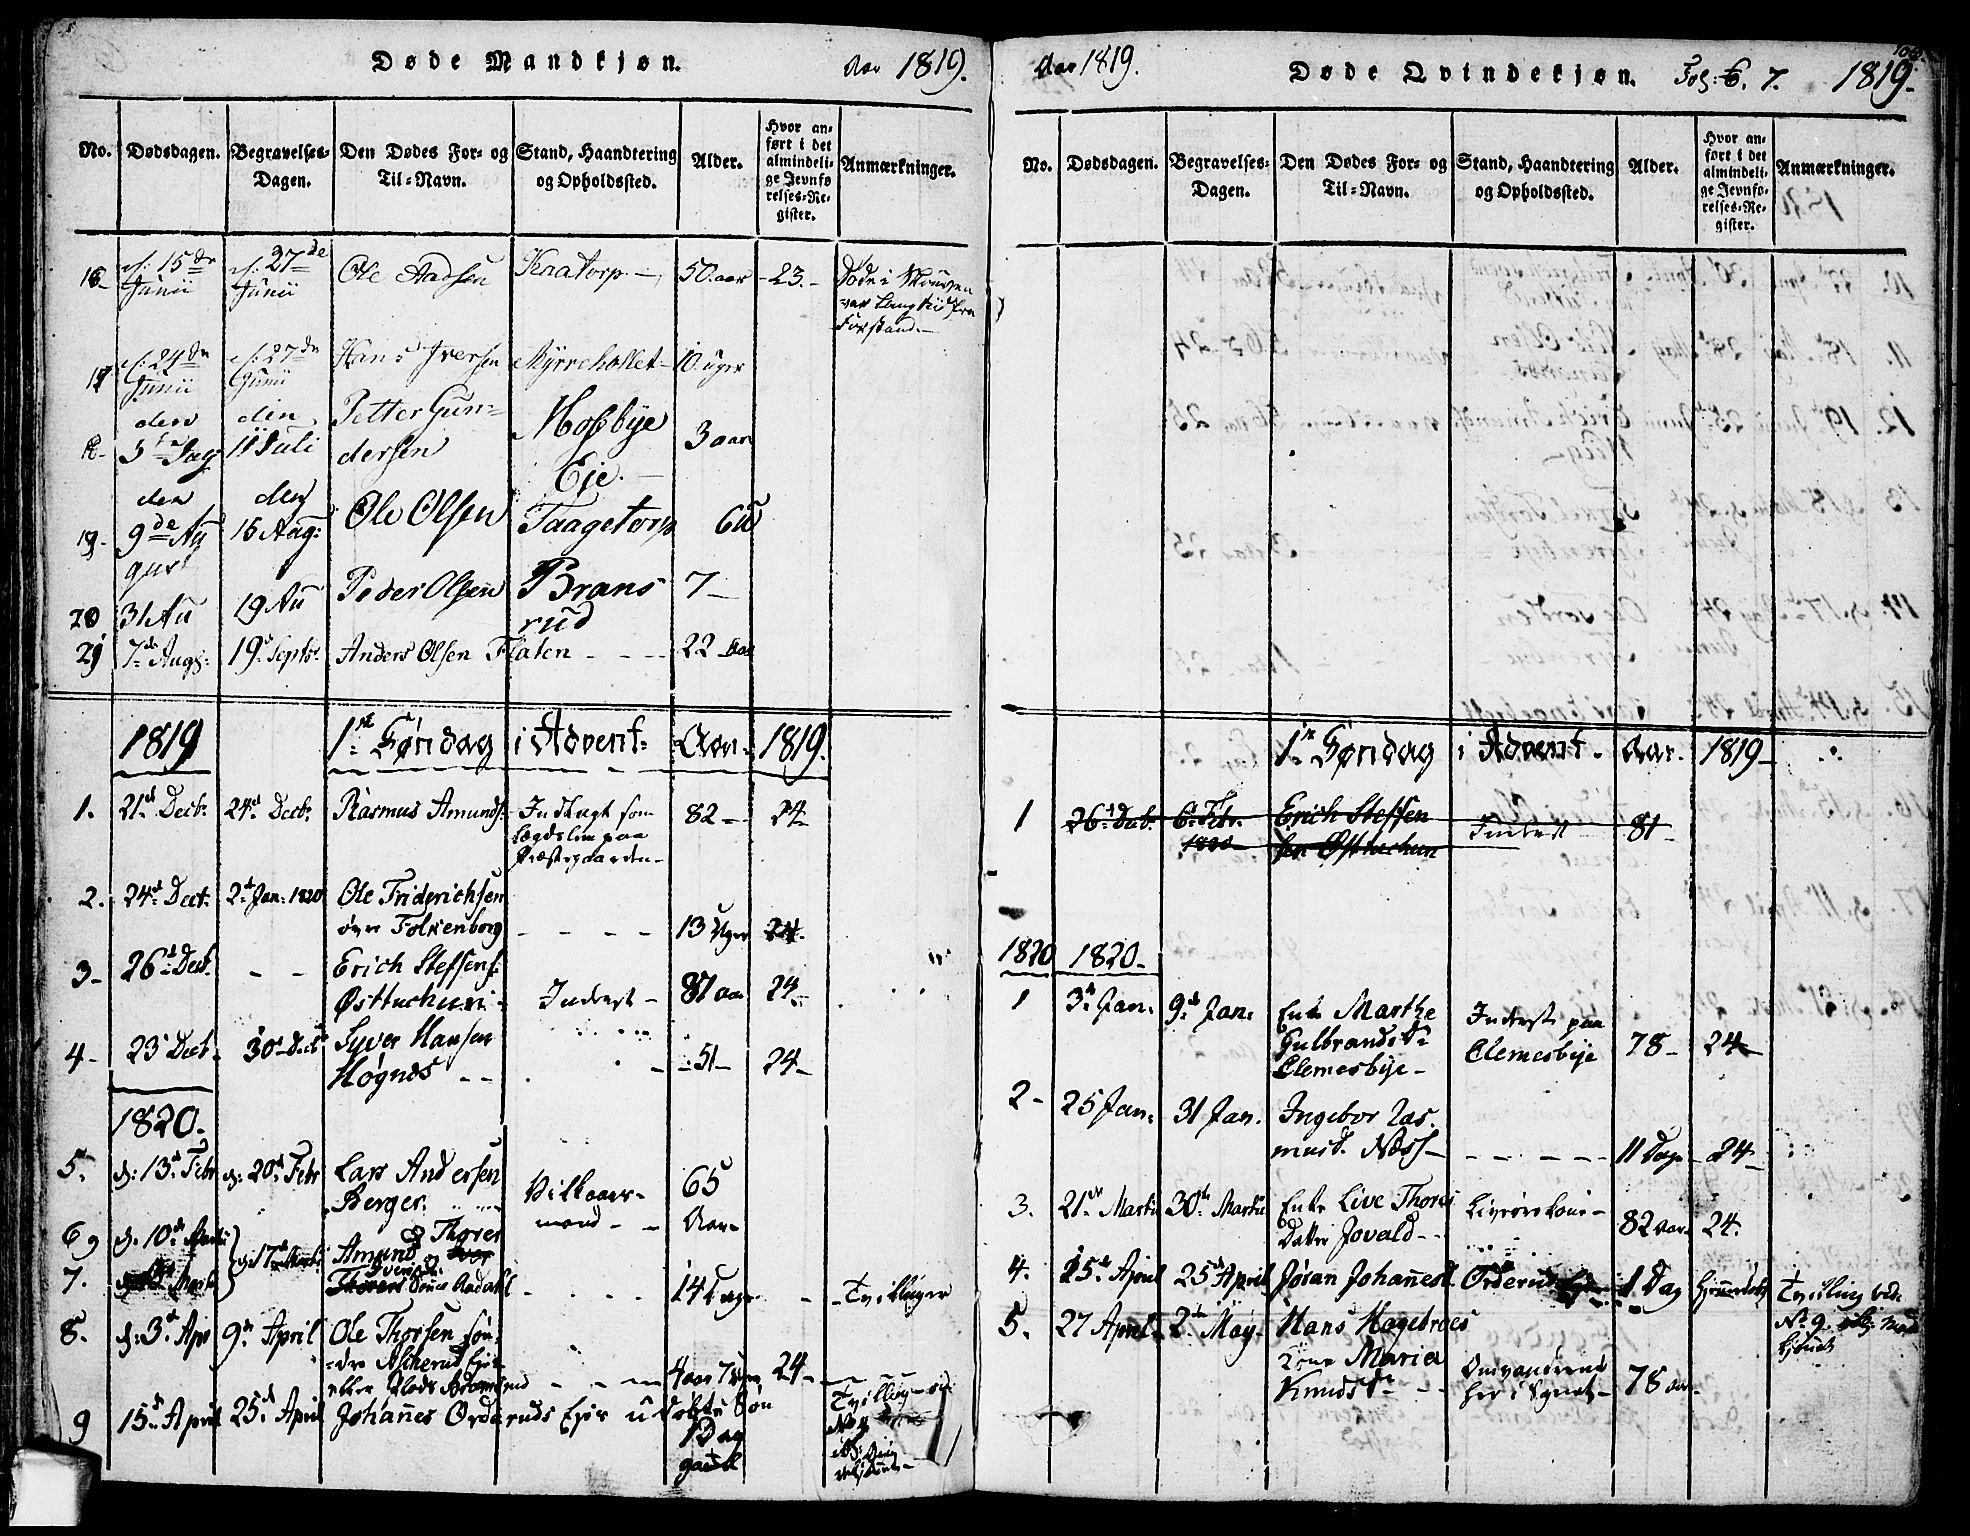 Døde Mandkjøn. Aar 1819.
No. Dødsdagen. Begravelses-Dagen. Den Dødes For- og Til-Navn. Stand, Haandtering og Opholdssted. Alder. Hvor anført i det almindelige Jevnførelses-Register. Anmærkninger.
16. d. 15de Junii d. 27de Junii Ole Aadsen Kaatorp 50 aar 23.
17 d. 24de Junii d. 27de Junii Hans Iversen Myrreholtet 10 uger
den 5te Jag den 11 Juli Petter Gundersen Mosbye Eje. 3 aar
19. den 9de August den 15 Aug: Ole Olsen Taagetorp 6u
20 31 Au 19 Au Peder Olsen Bransrud 7
21 7de Augs: 19. Septbr. Anders Olsen Flaten 22 Aar
1819 1ste Søndag i Advent: Aar 1819.
1. 21d Decb: 24d Decb: Rasmus Amunds: Indlagt som Lægdslem paa Præstegaarden 82 24
2. 24d Decb: 2d Jan: 1820 Ole Friderichsen øvre Folkenborg 13 Uger 24.
3 26d Decb. Erich Steffens: Østtuchun Inderst 87 aar 24
4 23 Decb. 30 Decb Syver Hansen Høgnes 51 24
1820.
5. d: 13d Febr d: 20d Febr Lars Andersen Berger. Vilkaarsmand 65 Aar
6 og d. 10d Martii d. 17d Amund og Thorer
7. Iversen Sønner Aadahl 14 Dage Tvillinger
8. d: 3d Apr 9de April Ole Thorsen søndre Askerud Eje 4 aar 24
9 15d April 25d April Johannes Orderuds Eje udøbte Søn 1 Dag gammel Tvilling
Aar 1819. Døde Qvindekjøn. Fol: 6. 7. 1819.
No. Dødsdagen. Begravelses-Dagen. Den Dødes For- og Til-Navn. Stand, Haandtering og Opholdssted. Alder. Hvor anført i det almindelige Jevnførelses-Register. Anmærkninger.
1ste Søndag i Advent. Aar. 1819
1 26d Decb. 6 Febr. 1820 Erich Steffensen Østtuchun Inderst 81
1820 1820.
1 3d Jan: 9de Jan: Enke Marthe Gulbrandsdr Clemesbye Inderst paa Clemesbye 78 24
2 25 Jan: 31 Jan. Ingebor Rasmusd. Næss 11 Dage 24
3. 21de Martii 30te Martii Enke Live Thores Datter Jovald 82 aar 24.
4. 15d April 25d April Jøran Johannesd. Orderud Eje 1 Dag Tvilling ved No 9. Mandkjønet
5. 27 April 2den May. Hans Hagebroes Kone Maria Knudsdr Omvandrende her i Sognet 78 aar